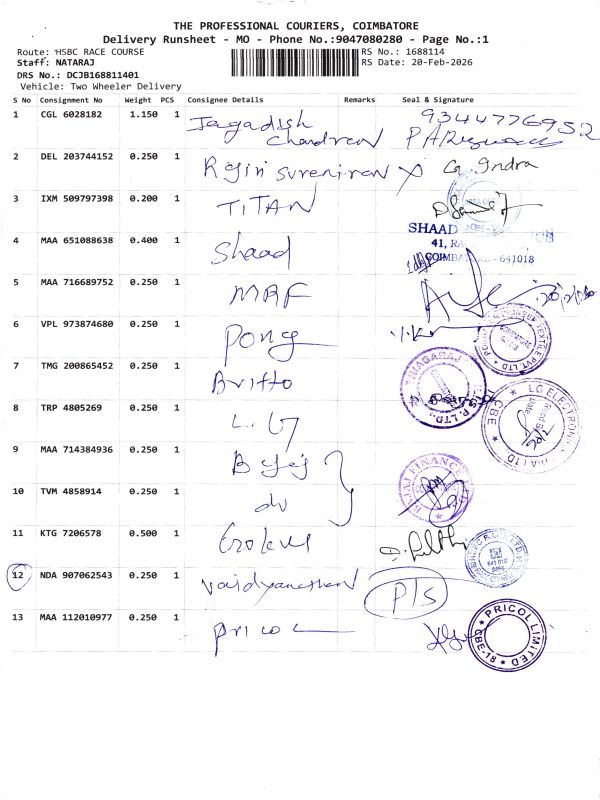 THE PROFESSIONAL COURIERS, COIMBATORE
Delivery Runsheet - MO - Phone No.:9047080280 - Page No.:1
Route: HSBC RACE COURSE
RS No.: 1688114
Staff: NATARAJ
RS Date: 20-Feb-2026
DRS No.: DCJB168811401
Vehicle: Two Wheeler Delivery
S No Consignment No Weight PCS Consignee Details Remarks Seal & Signature
1 CGL 6028182 1.150 1 Jagadish Chandran 9344776952
2 DEL 203744152 0.250 1 G. Indra
3 IXM 509797398 0.200 1 TITAN
SHAAD
4 MAA 651088638 0.400 1 Shaad 41,
COIMBATORE - 641018
5 MAA 716689752 0.250 1 MRF
6 VPL 973874680 0.250 1 Pong
7 TMG 200865452 0.250 1 Britto
8 TRP 4805269 0.250 1 L.G
LG ELECTRONICS
9 MAA 714384936 0.250 1 Bajaj
BAJAJ FINANCE
10 TVM 4858914 0.250 1 do
11 KTG 7206578 0.500 1
12 NDA 907062543 0.250 1 Vaidyanathan P/S
13 MAA 112010977 0.250 1 Pricol
PRICOL LIMITED
CBE-18